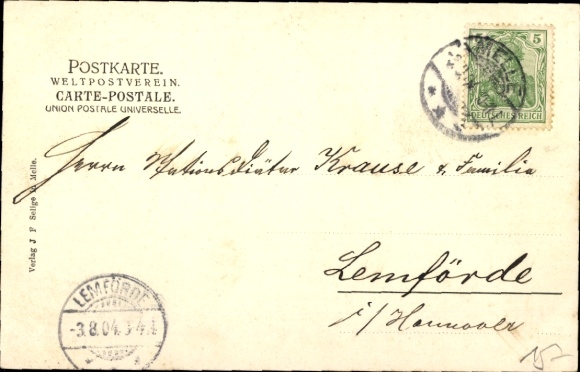 POSTKARTE.
WELTPOSTVEREIN.
CARTE-POSTALE.
UNION POSTALE UNIVERSELLE.
MELLE
5
DEUTSCHES REICH
Herrn Stationsdiätar Krause & Familie
Lemförde
i/Hannover
Verlag J F Sellge Melle.
LEMFÖRDE
-3.8.04. 3-4
15-